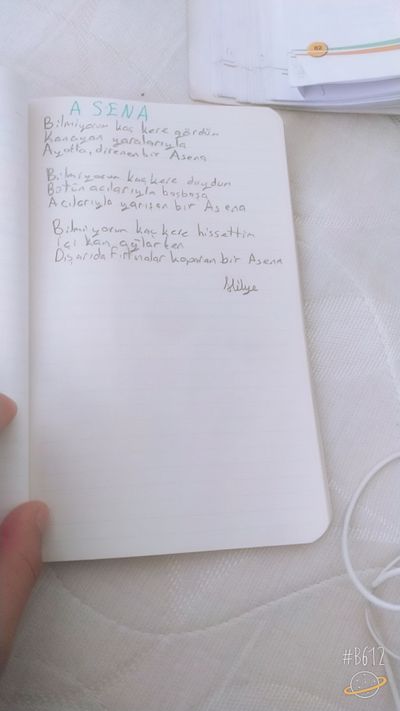 ASENA
Bilmiyorum kaç kere gördüm
Kanayan yaralarıyla
Ayakta, direnen bir Asena
Bilmiyorum kaç kere duydum
Bütün acılarıyla başbaşa
Acılarıyla yarışan bir Asena
Bilmiyorum kaç kere hissettim
İçi kan ağlarken
Dışarıda fırtınalar koparan bir Asena
82
#B612